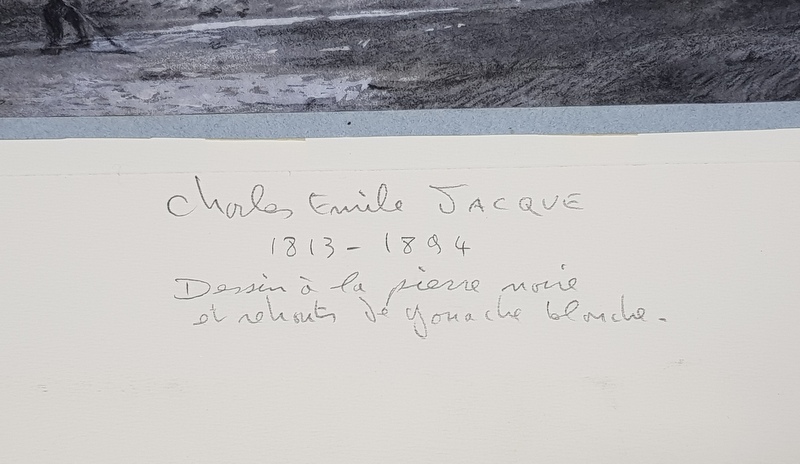 Charles Emile JACQUE
1813 - 1894
Dessin à la pierre noire
et rehauts de gouache blanche.